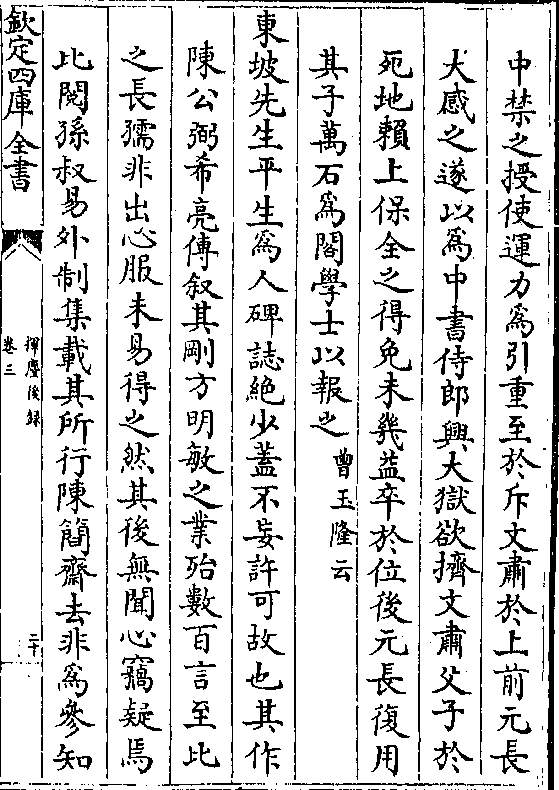 中禁之授使運力爲引重至於斥文肅於上前元長
大感之遂以爲中書侍郎興大獄欲擠文肅父子於
死地賴上保全之得免未幾益卒於位後元長復用
其子萬石爲閣學士以報之曾玉隆云
東坡先生平生爲人碑誌絶少蓋不妄許可故也其作
陳公弼希亮傳叙其剛方明敏之業殆數百言至比
之長孺非出心服未易得之然其後無聞心竊疑焉
比閲孫叔易外制集載其所行陳簡齋去非爲參知
欽定四庫全書
揮麈後録
卷三
二十